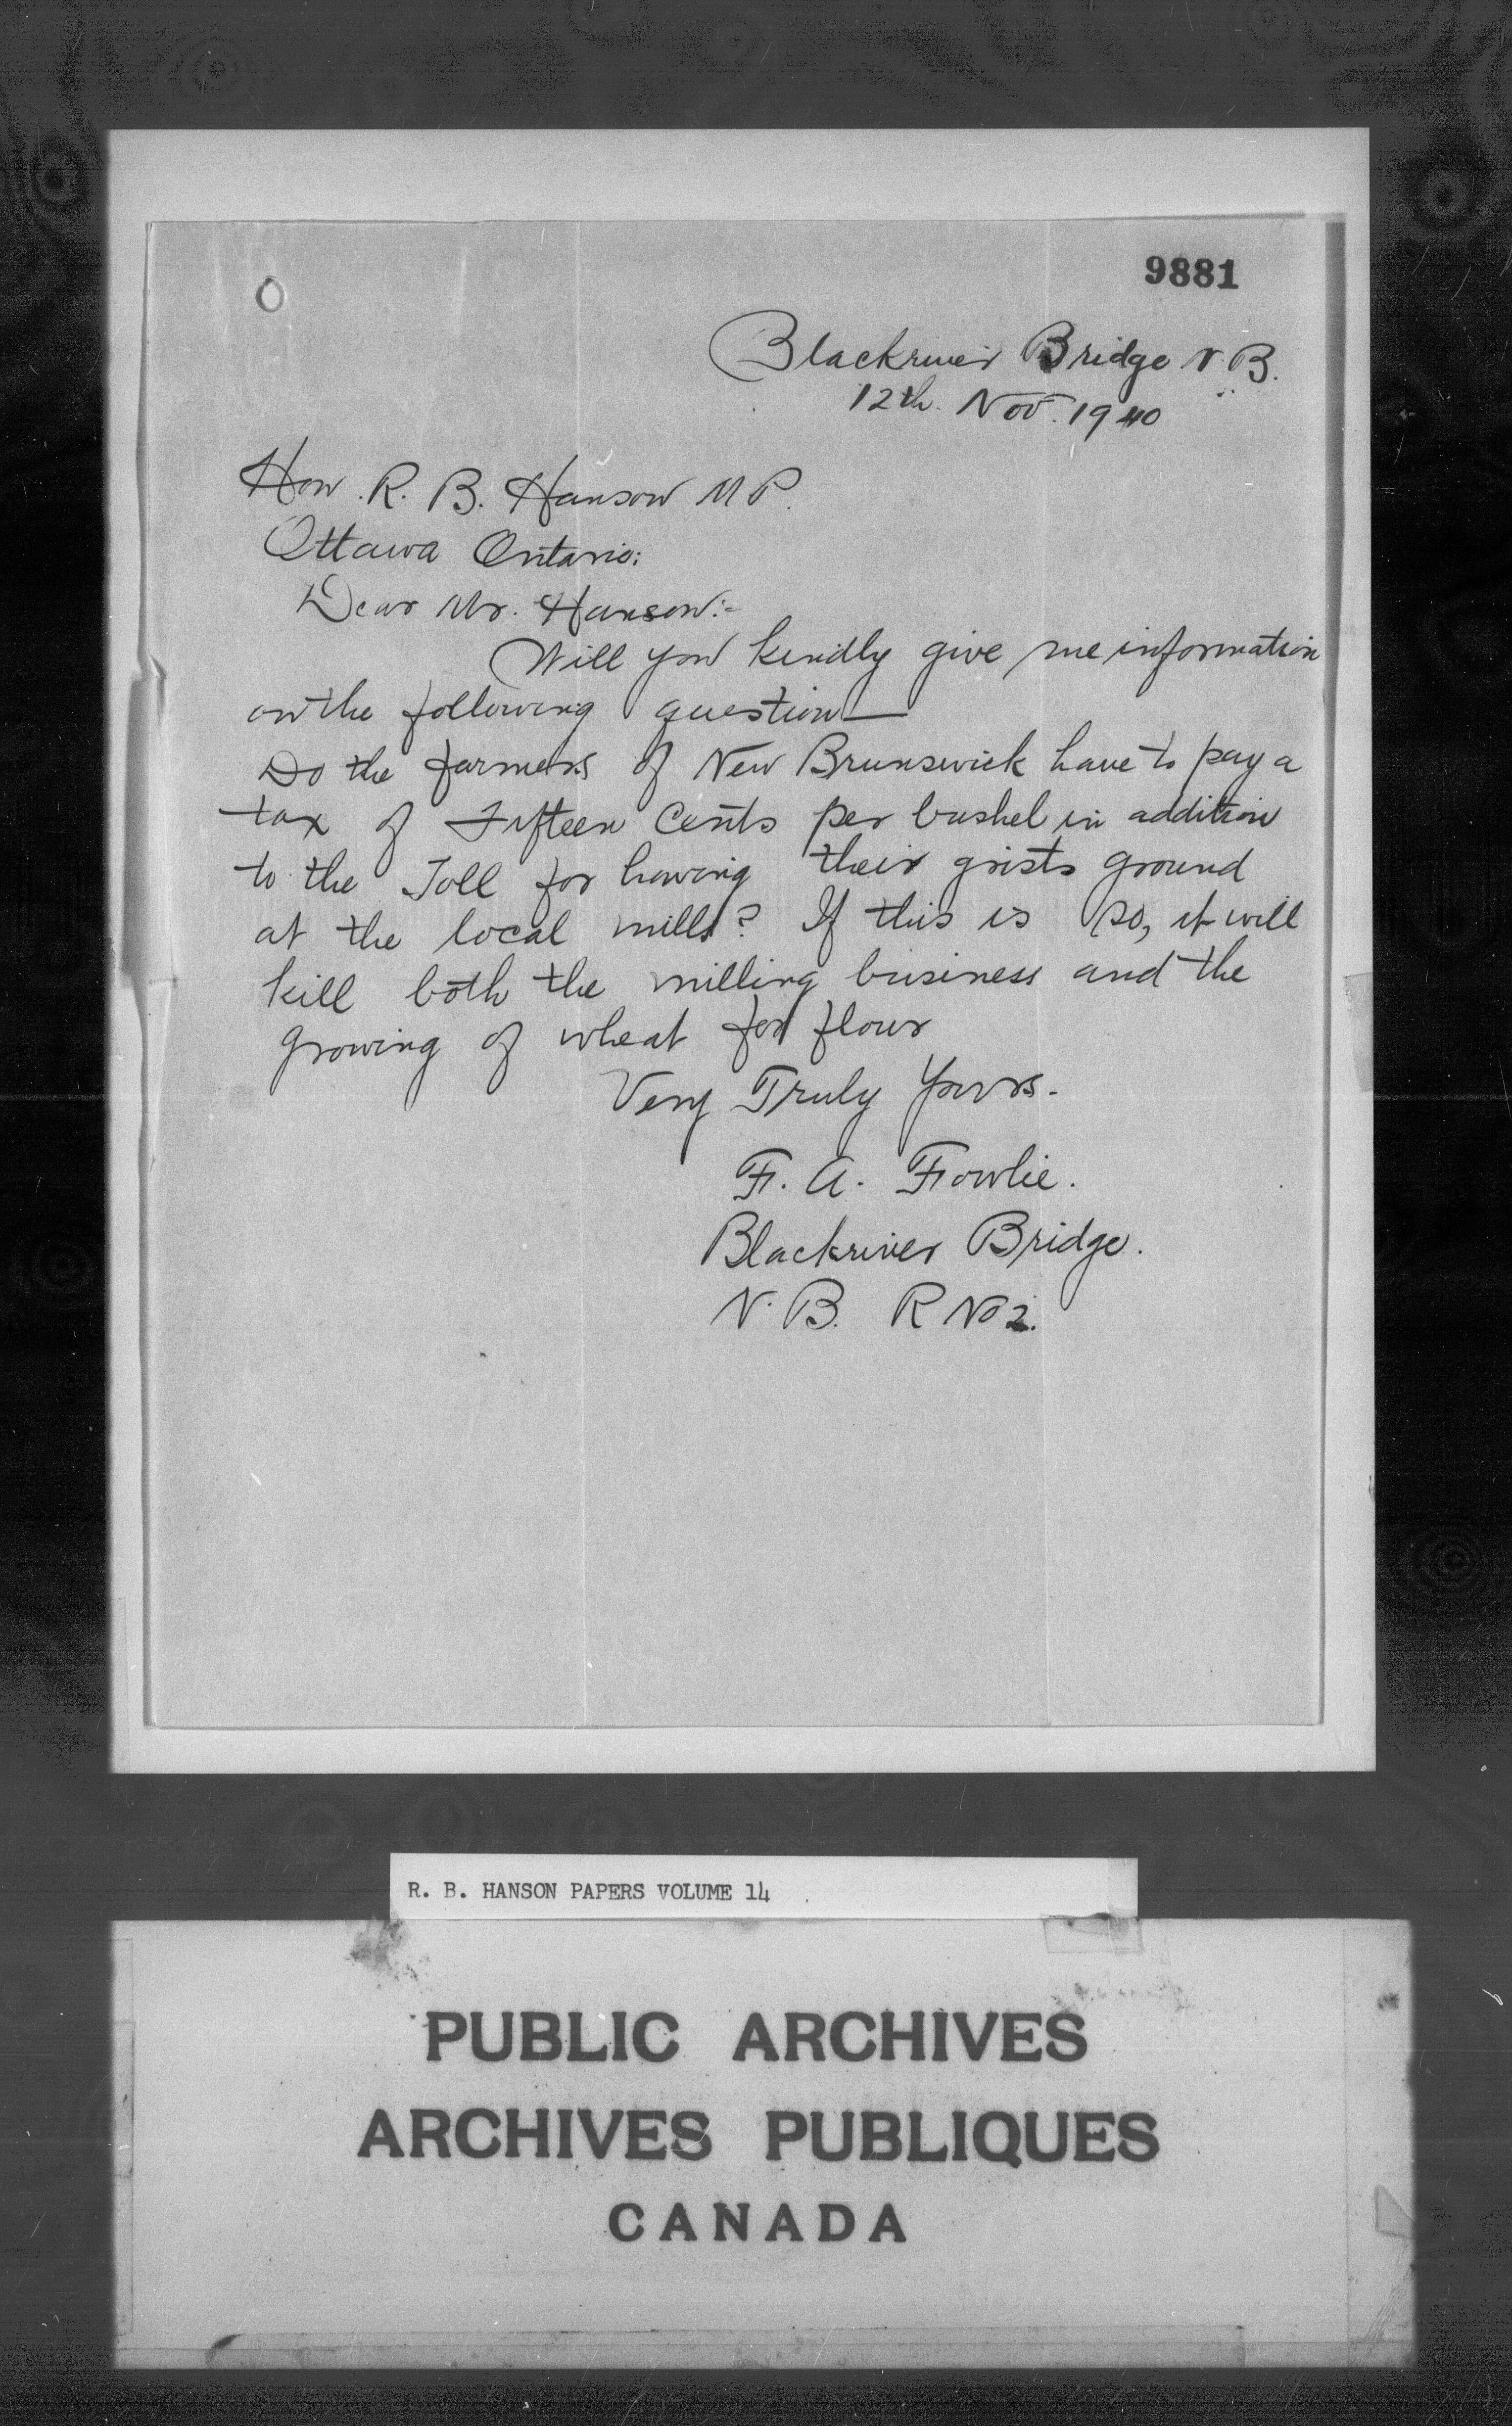 9881
Blackriver Bridge N.B.
12th. Nov. 1940
Hon. R. B. Hanson M P.
Ottawa Ontario:
Dear Mr. Hanson:-
Will you kindly give me information
on the following question—
Do the farmers of New Brunswick have to pay a
tax of Fifteen Cents per bushel in addition
to the Toll for having their grists ground
at the local mills? If this is so, it will
kill both the milling business and the
growing of wheat for flour
Very Truly Yours.
F. A. Fowlie.
Blackriver Bridge.
N. B. R No 2.
R. B. HANSON PAPERS VOLUME 14
PUBLIC ARCHIVES
ARCHIVES PUBLIQUES
CANADA